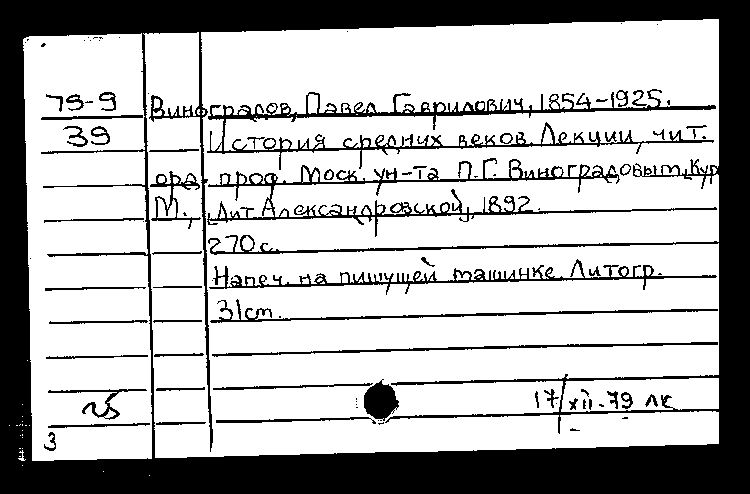 79-9 Виноградов, Павел Гаврилович, 1854-1925.
39 История средних веков. Лекции, чит.
орд. проф. Моск. ун-та П.Г. Виноградовым, Кур
М., Лит. Александровской, 1892.
270 с.
Напеч. на пишущей машинке. Литогр.
31 см.
17/XII-79 ЛК
3